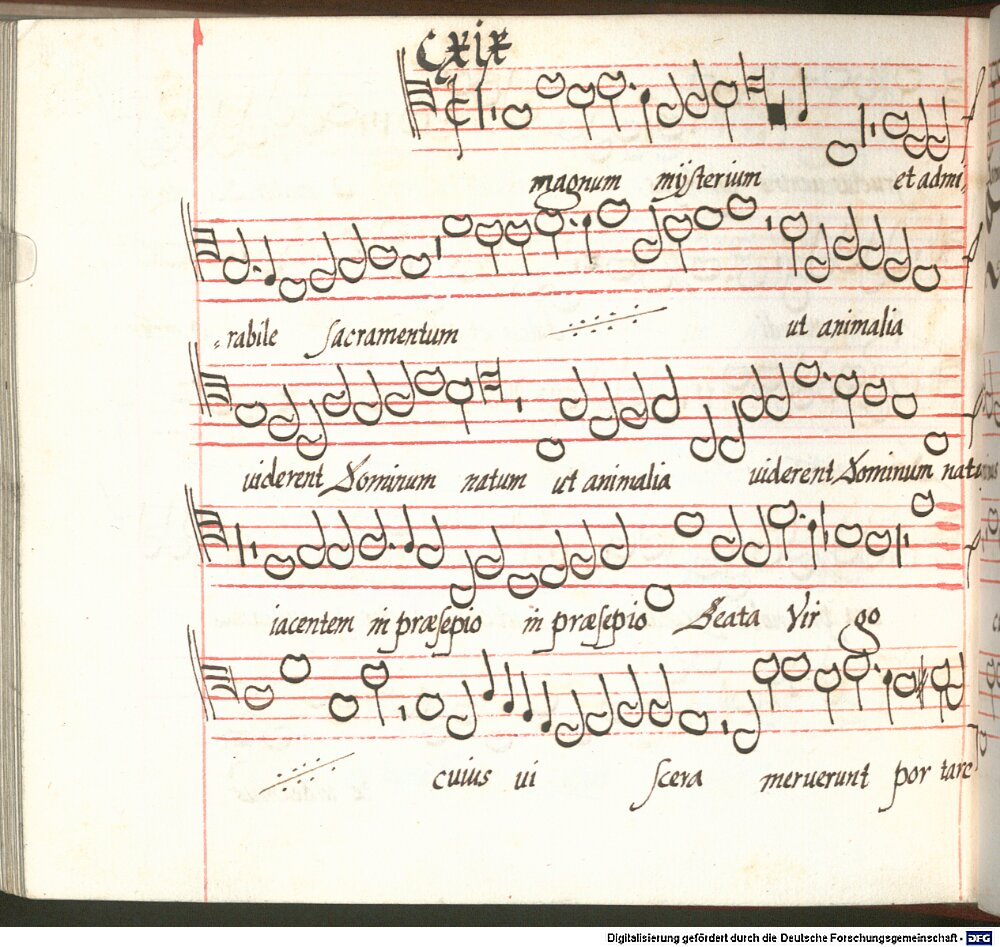 Cxix
magnum mÿsterium et admi,
-rabile sacramentum ut animalia
uiderent Dominum natum ut animalia uiderent Dominum natu
iacentem in præsepio in præsepio Beata Vir go
cuius ui scera meruerunt por tare
Digitalisierung gefördert durch die Deutsche Forschungsgemeinschaft - DFG